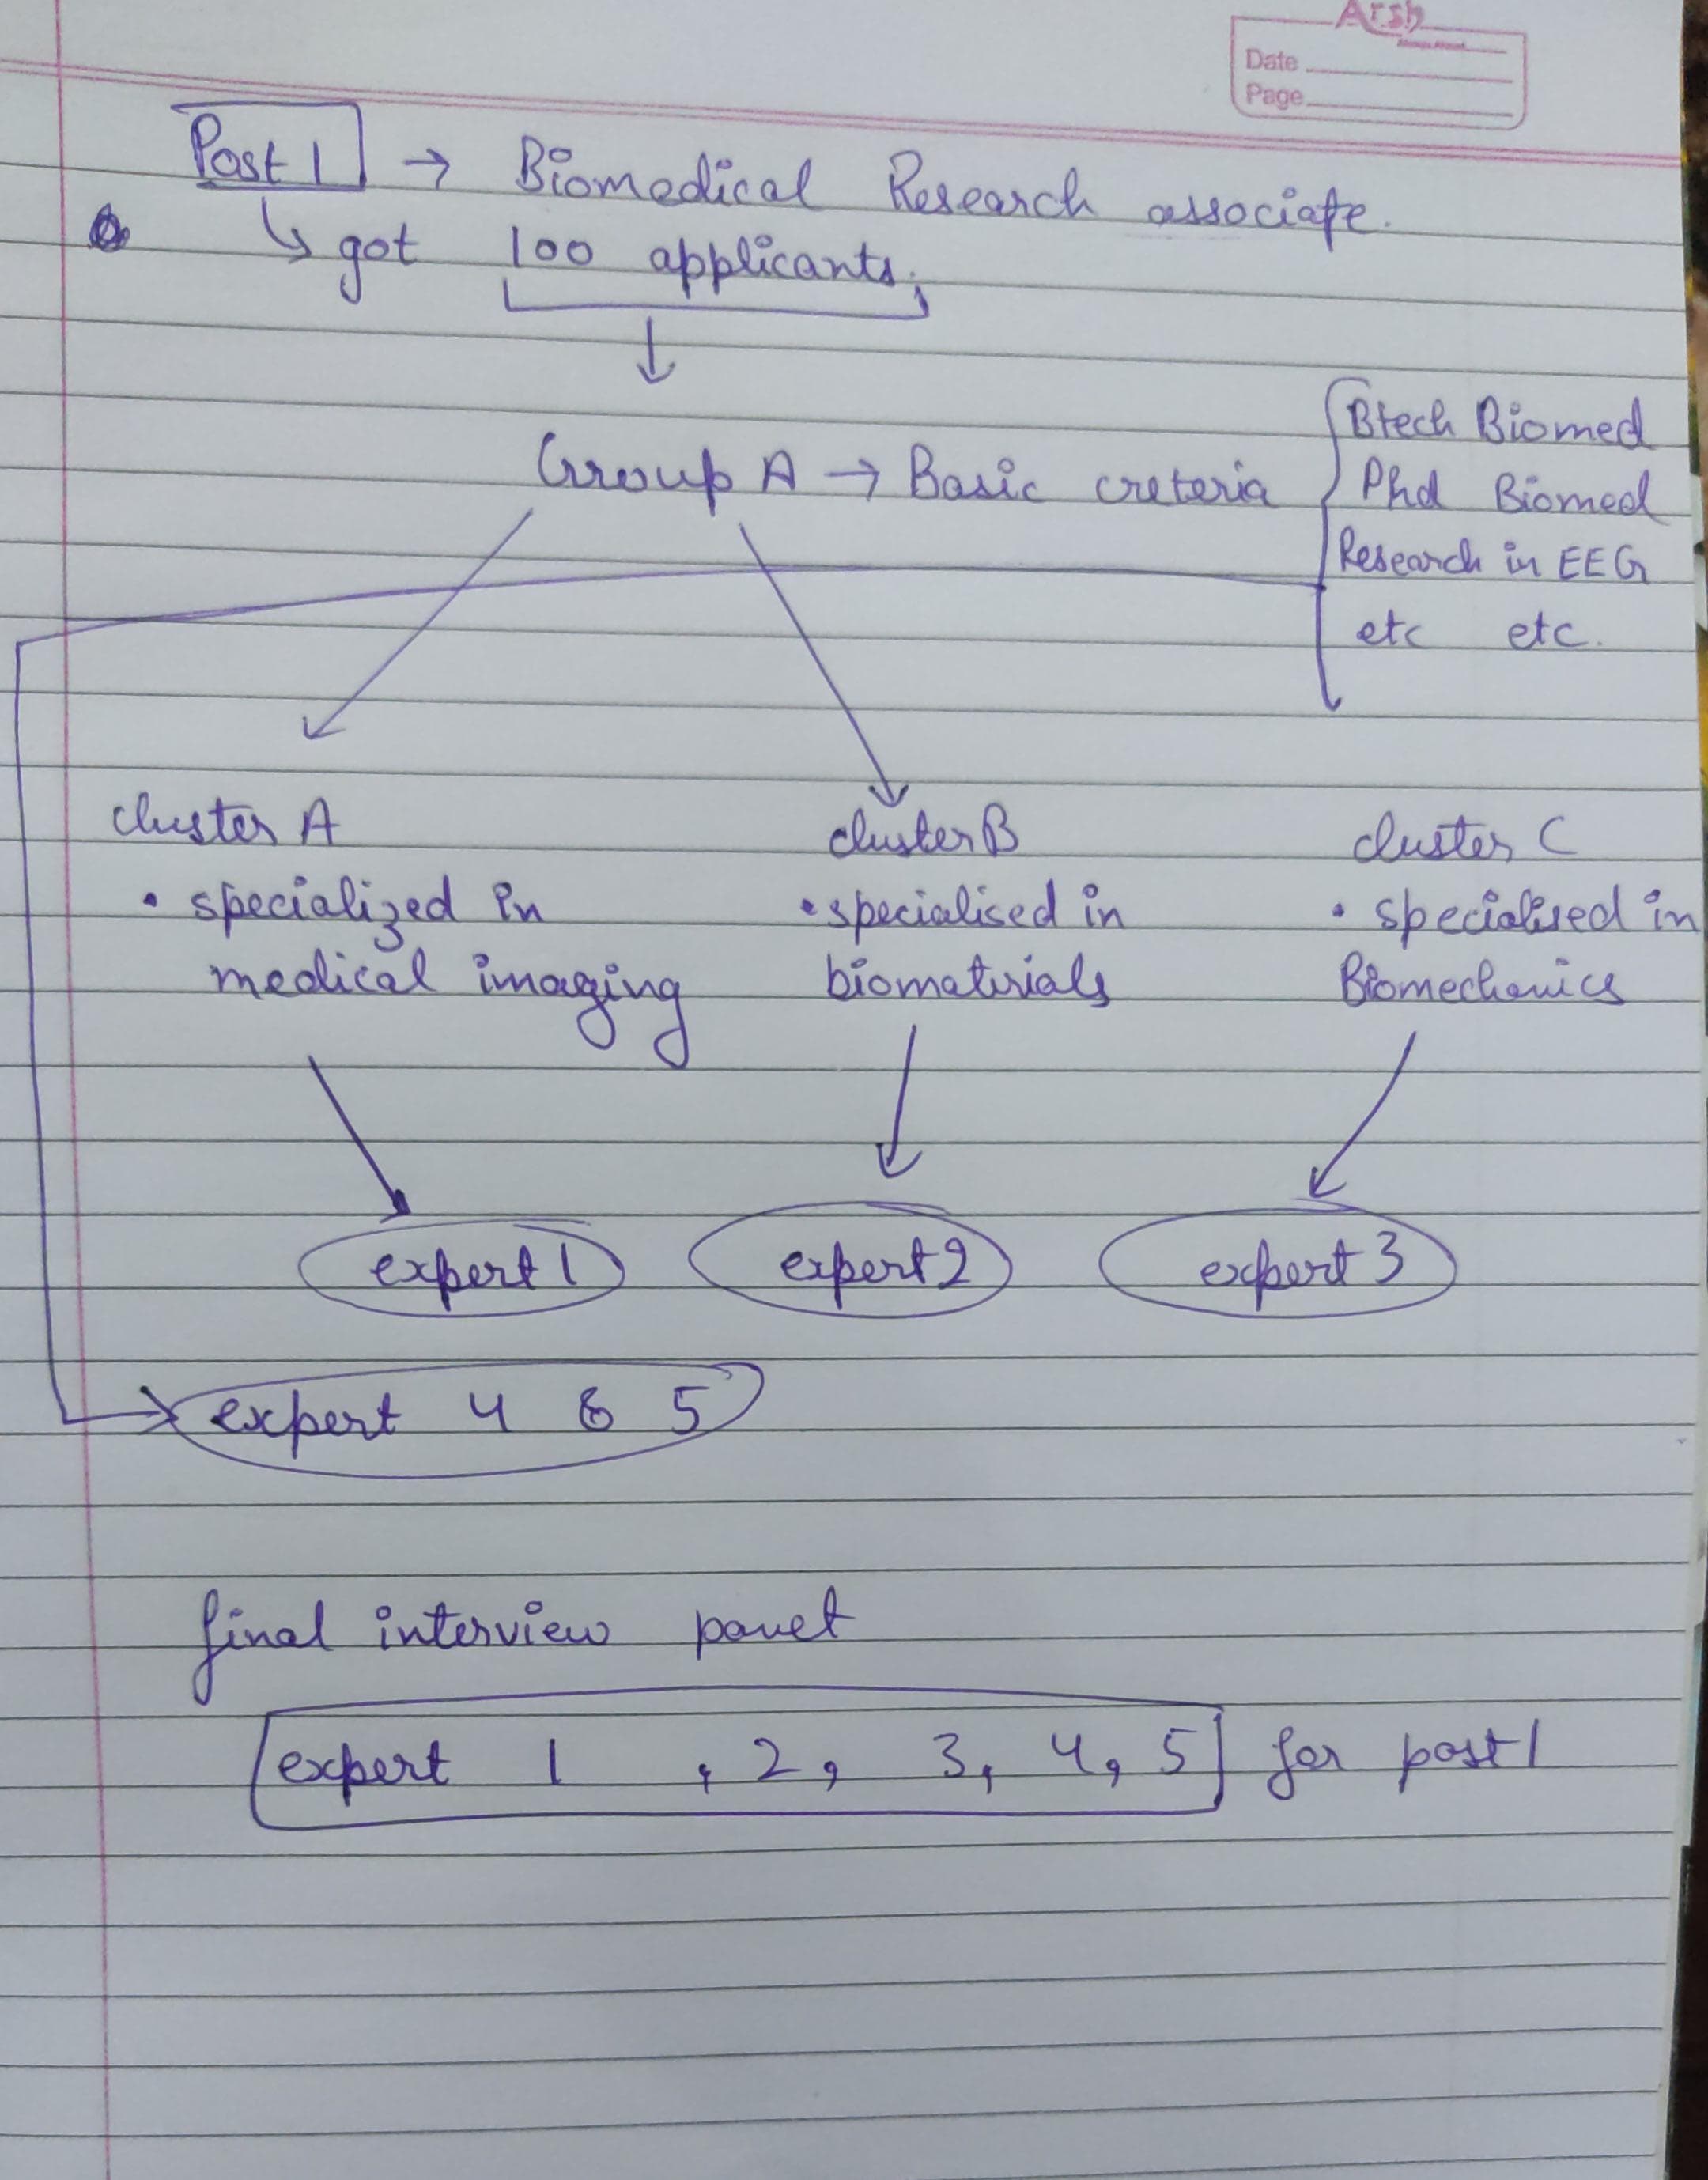 Arsh
Date
Page
Post 1 → Biomedical Research associate.
↳ got 100 applicants.
Group A → Basic creteria
Btech Biomed
Phd Biomed
Research in EEG
etc etc.
cluster A
• specialized in
medical imaging
cluster B
• specialised in
biomaterials
cluster C
• specialised in
Biomechanics
expert 1
expert 2
expert 3
expert 4 & 5
final interview panel
expert 1 , 2, 3, 4, 5 for post 1